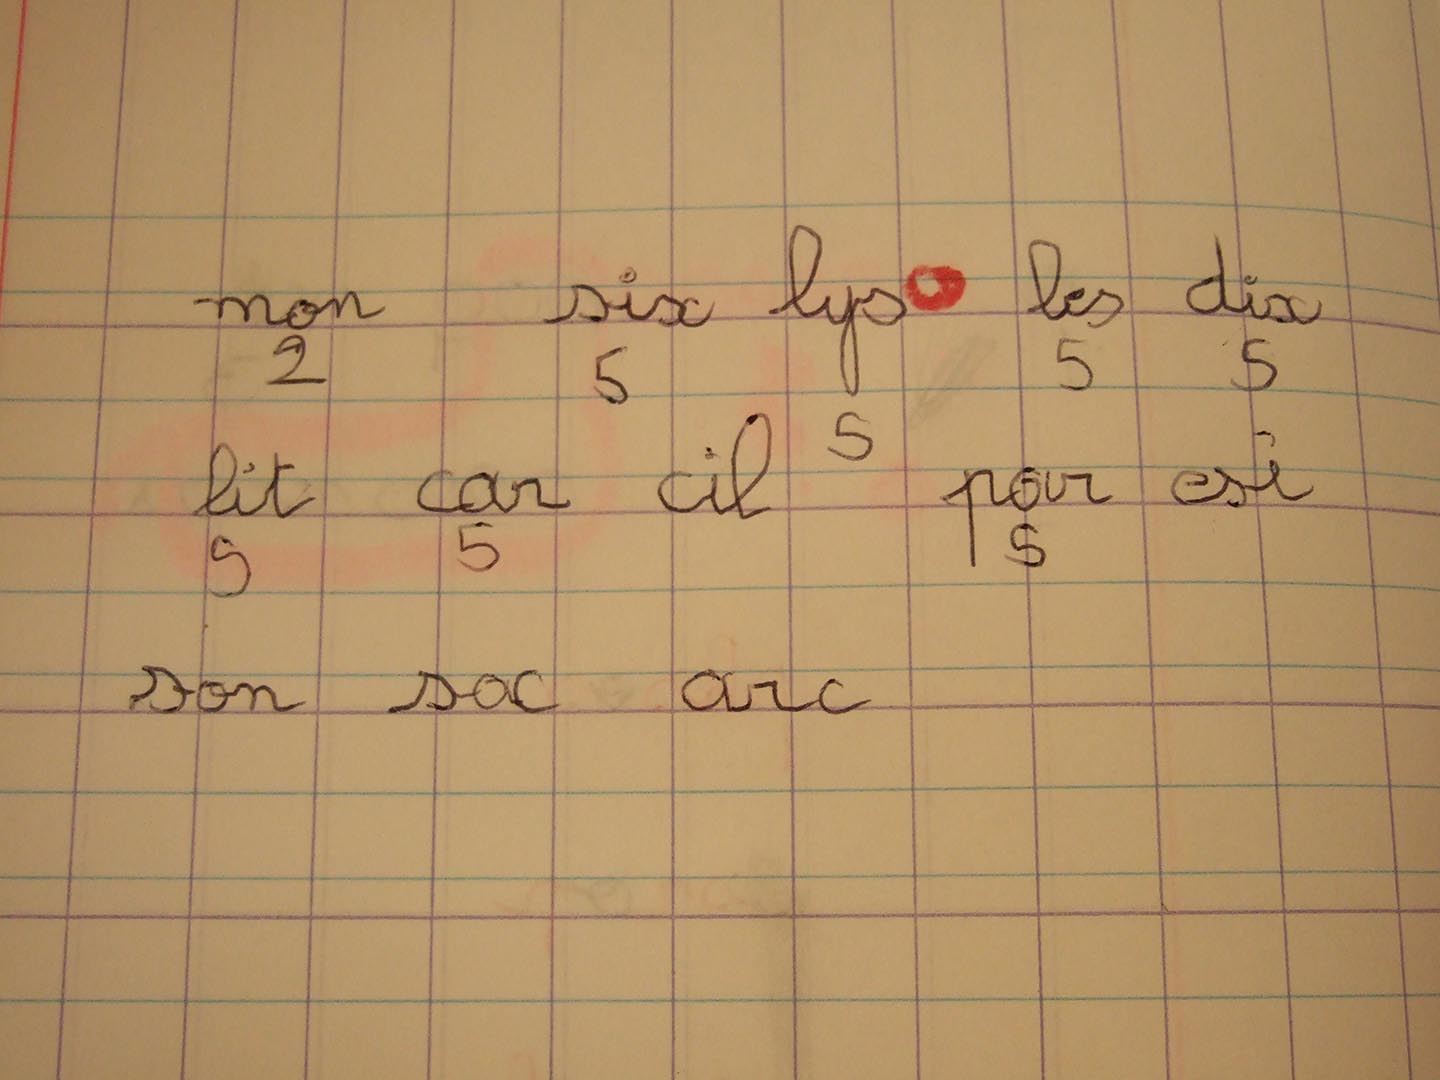 mon six lys les dix
2 5 5 5 5
lit car cil par esi
5 5 5
son sac arc